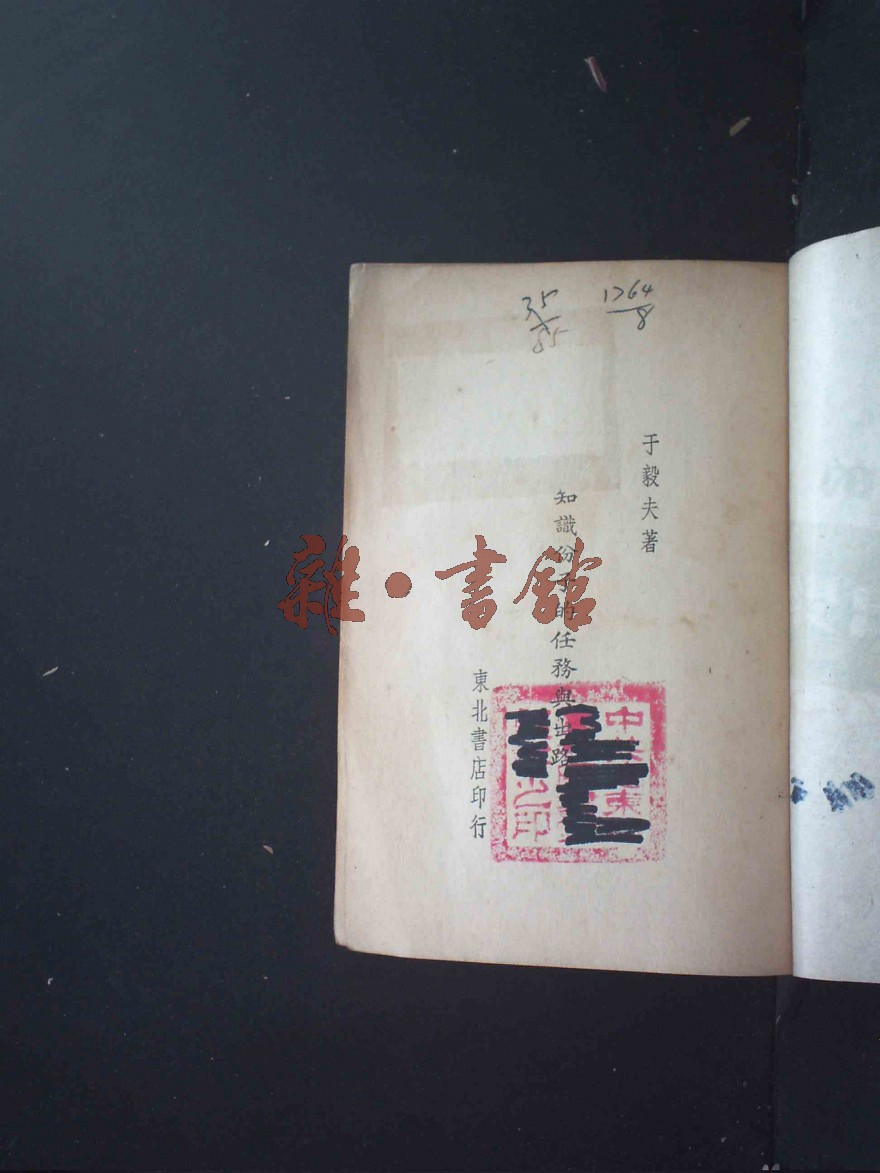 35
85
1764
8
于毅夫著
知識份子的任務與出路
東北書店印行
雜·書館
中 東
之印